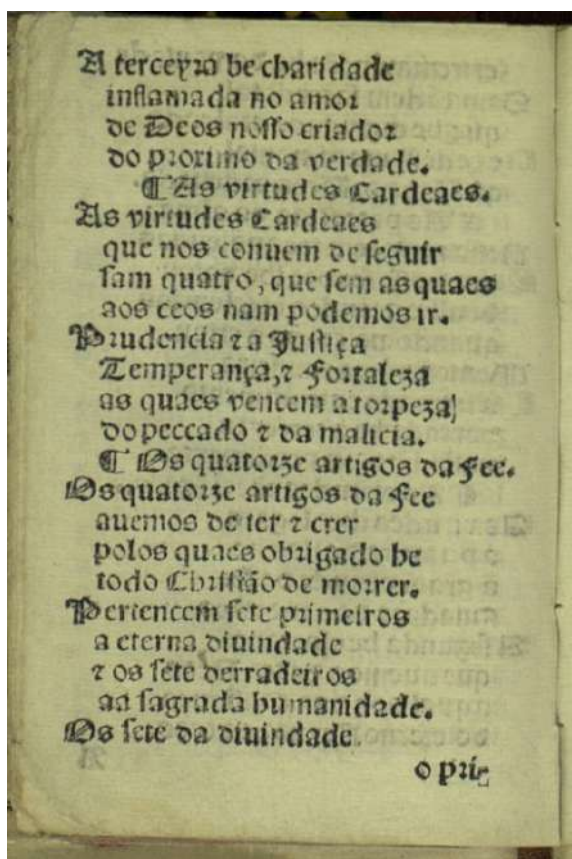 A terceyra he charidade
inflamada no amor
de Deos nosso criador
do proximo da verdade.
¶ As virtudes Cardeaes.
As virtudes Cardeaes
que nos conuem de seguir
sam quatro, que sem as quaes
aos ceos nam podemos ir.
Prudencia ⁊ a Justiça
Temperança, ⁊ Fortaleza
as quaes vencem a torpeza)
do peccado ⁊ da malicia.
¶ Os quatorze artigos da Fee.
Os quatorze artigos da Fee
auemos de ter ⁊ crer
polos quaes obrigado he
todo Christão de morrer.
Pertencem sete primeiros
a eterna diuindade
⁊ os sete derradeiros
aa sagrada humanidade.
Os sete da diuindade.
o pri-